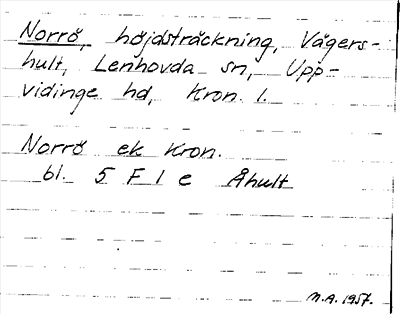 Norrö, höjdsträckning, Vägers-
hult, Lenhovda sn, Upp-
vidinge hd, Kron. l.
Norrö ek Kron.
bl. 5 F 1 e Åhult
M.A. 1957.